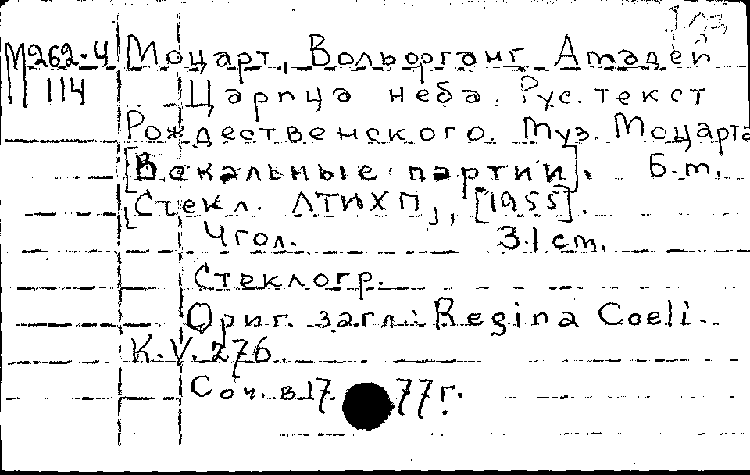 М262-4 Моцарт, Вольфганг Амадей
114 Царица неба. Рус. текст
Рождественского. Муз. Моцарта
[Вокальные партии]. Б.м.,
[Стекл. ЛТИХП], [1955].
4 гол. 31 cm.
Стеклогр.
Ориг. загл.: Regina Coeli.
K.V. 276.
Соч. в 1777 г.